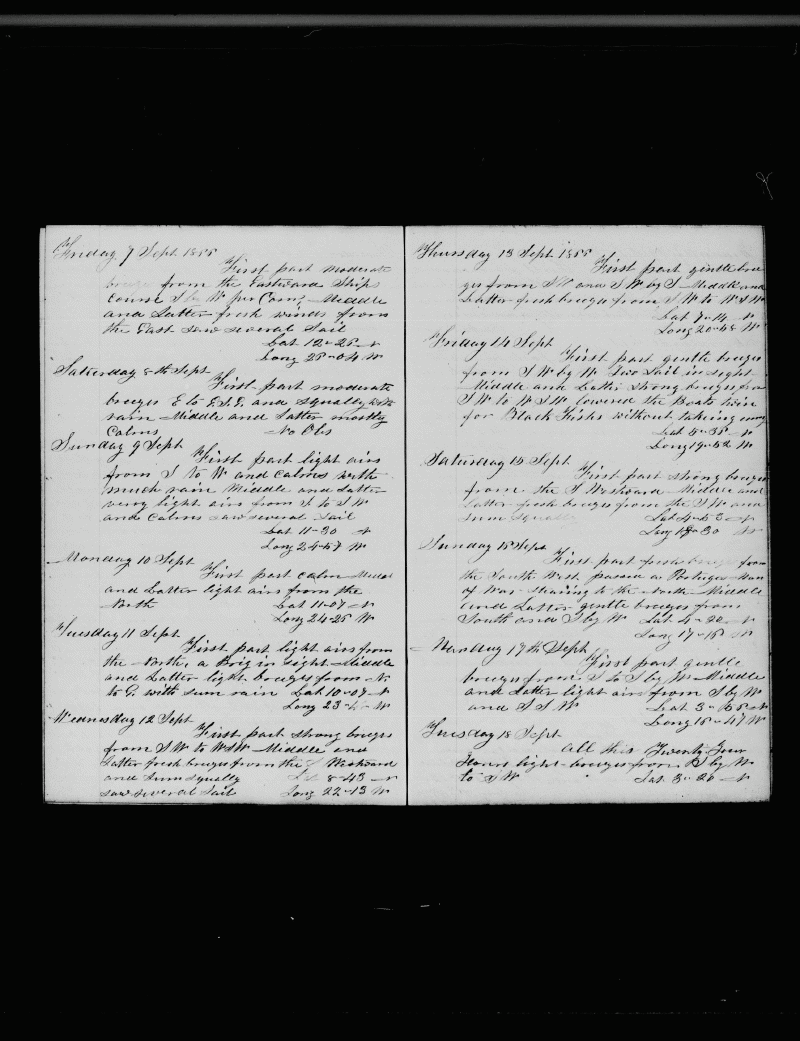 Friday 7 Sept 1855
First part moderate
breezes from the Eastward Ships
course S by W per Comp Middle
and Latter fresh winds from
the East saw several Sail
Lat 12-28 N
Long 25-04 W
Satterday 8th Sept
First part moderate
breezes E to E.S.E. and squally with
rain Middle and Latter mostly
Calms No Obs
Sunday 9 Sept
First part light airs
from S to W and Calms with
much rain Middle and Latter
very light airs from S to S W
and Calms saw several Sail
Lat 11-30 N
Long 24-57 W
Monday 10 Sept
First part calm Middle
and Latter light airs from the
North Lat 11-07 N
Long 24-25 W
Tuesday 11 Sept
First part light airs from
the North, a Brig in sight Middle
and Latter light breezes from N
to E. with sum rain Lat 10-07 N
Long 23 W
Wednesday 12 Sept
First part strong breezes
from S W to W S W Middle and
Latter fresh breezes from the S Westward
and Sum squally Lat 8-43 N
saw several Sail Long 22-13 W
Thursday 13 Sept 1855
First part gentle bree
zes from S W and S W by S Middle and
Latter fresh breezes from S W to W S W
Lat 7-14 N
Long 20-48 W
Friday 14 Sept
First part gentle breezes
from S W by W Two Sail in sight
Middle and Latter Strong breezes from
S W to W S W lowered the Boats twice
for Black Fishs without taking
Lat 5-38 N
Long 19-52 W
Satterday 15 Sept
First part strong breezes
from the S Westward Middle and
Latter fresh breezes from the S W and
sum squalls Lat 4-53 N
Long 18-30 W
Sunday 16 Sept
First part fresh breezes from
the South West, passed a Portugee Man
of War stearing to the North Middle
and Latter gentle breezes from
South and S by W Lat 4-22 N
Long 17-15 W
Monday 17th Sept
First part gentle
breezes from S to S by W Middle
and Latter light airs from S by W
and S S W Lat 3-55 N
Long 15-47 W
Tuesday 18 Sept
All this Twenty Four
Hours light breezes from S by W
to S W Lat 3-26 N